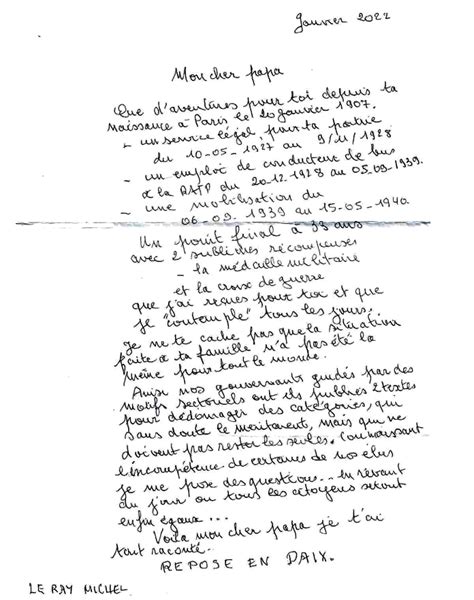 Janvier 2022
Mon cher papa
Que d'aventures pour toi depuis ta
naissance à Paris le 20 janvier 1907.
- un service légal pour ta patrie
du 10-05-1927 au 9/11/1928
- un emploi de conducteur de bus
à la RATP du 20-12-1928 au 05-09-1939.
- une mobilisation du
06-09-1939 au 15-05-1940.
Un point final à 33 ans
avec 2 sublimes récompenses
- la médaille militaire
et la croix de guerre
que j'ai reçues pour toi et que
je "contemple" tous les jours.
Je ne te cache pas que la situation
faite à ta famille n'a pas été la
même pour tout le monde.
Ainsi nos gouvernants guidés par des
motifs sectoriels ont ils publiés 2 textes
pour dédommager des catégories, qui
sans doute le méritaient, mais qui ne
doivent pas rester les seules. Connaissant
l'incompétence de certains de nos élus
je me pose des questions... en rêvant
du jour où tous les citoyens seront
enfin égaux...
Voilà mon cher papa je t'ai
tout raconté..
REPOSE EN PAIX.
LE RAY MICHEL